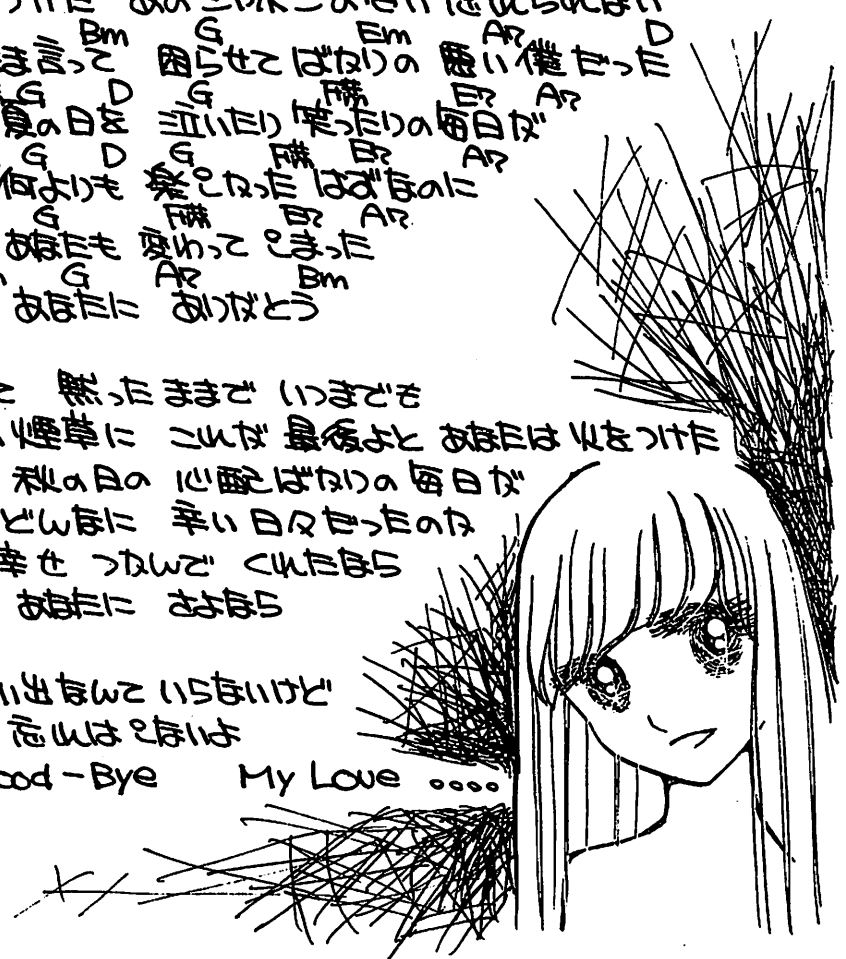 Bm G Em A7 D
ま言って 困らせてばかりの 悪い僕だった
G D G F#m E7 A7
夏の日を 泣いたり 笑ったりの毎日が
G D G F#m E7 A7
何よりも 楽しかった はずなのに
G F#m E7 A7
あなたも 変わって しまった
G A7 Bm
あなたに ありがとう
て 黙ったままで いつまでも
い煙草に これが 最後よと あなたは 火をつけた
秋の日の 心配ばかりの 毎日が
どんなに 辛い日々だったのか
幸せ つかんで くれたなら
あなたに さよなら
い出なんて いらないけど
忘れは しないよ
ood-Bye My Love ....